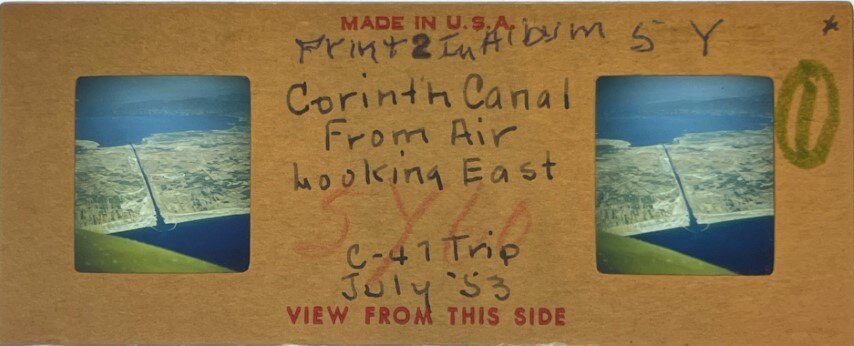 MADE IN U.S.A.
Print 2 In Album 5 Y *
Corinth Canal
From Air
Looking East
5Y60
C-47 Trip
July '53
VIEW FROM THIS SIDE
1